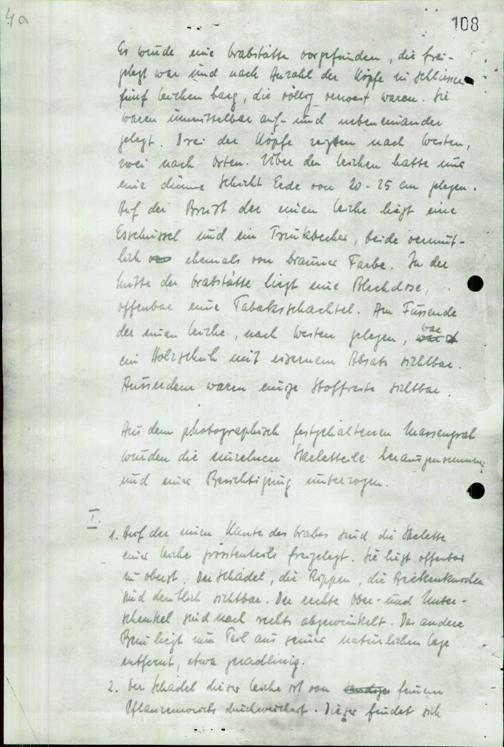 4a
108
Es wurde eine Grabstätte vorgefunden, die frei-
gelegt war und nach Anzahl der Köpfe zu schliessen
fünf Leichen barg, die völlig verwest waren. Sie
waren unmittelbar auf- und nebeneinander
gelegt. Drei der Köpfe zeigten nach Westen,
zwei nach Osten. Über den Leichen hatte nur
eine dünne Schicht Erde von 20-25 cm gelegen.
Auf der Brust der einen Leiche liegt eine
Esschüssel und ein Trinkbecher, beide vermut-
lich ehemals von brauner Farbe. In der
Mitte der Grabstätte liegt eine Blechdose,
offenbar eine Tabakschachtel. Am Fussende
der einen Leiche, nach Westen gelegen, war
ein Holzschuh mit eisernem Absatz sichtbar.
Ausserdem waren einige Stoffreste sichtbar.
Aus dem photographisch festgehaltenen Massengrab
wurden die einzelnen Skeletteile herausgenommen
und einer Besichtigung unterzogen.
I.
1. Auf der einen Kante des Grabes sind die Skelette
einer Leiche grösstenteils freigelegt. Sie liegt offenbar
zu oberst. Der Schädel, die Rippen, die Beckenknochen
sind deutlich sichtbar. Der rechte Ober- und Unter-
schenkel sind nach rechts abgewinkelt. Das andere
Bein liegt zum Teil aus seiner natürlichen Lage
entfernt, etwa geradlinig.
2. Der Schädel dieser Leiche ist von feinem
Pflanzenwuchs durchwuchert. Dieser findet sich